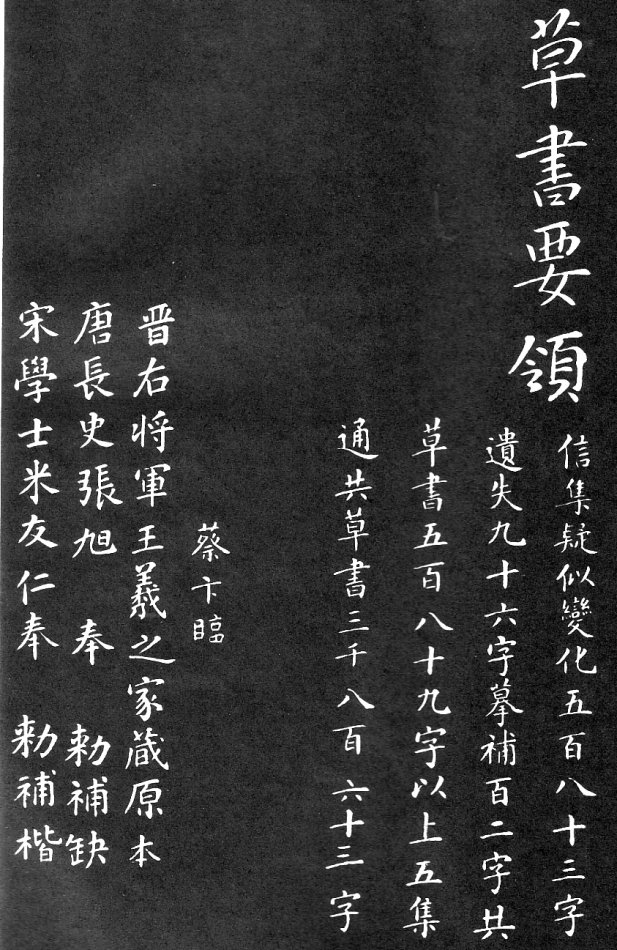 草書要領
信集疑似變化五百八十三字
遺失九十六字摹補百二字共
草書五百八十九字以上五集
通共草書三千八百六十三字
蔡卞臨
晋右将軍王羲之家蔵原本
唐長史張旭奉勅補缺
宋學士米友仁奉勅補楷